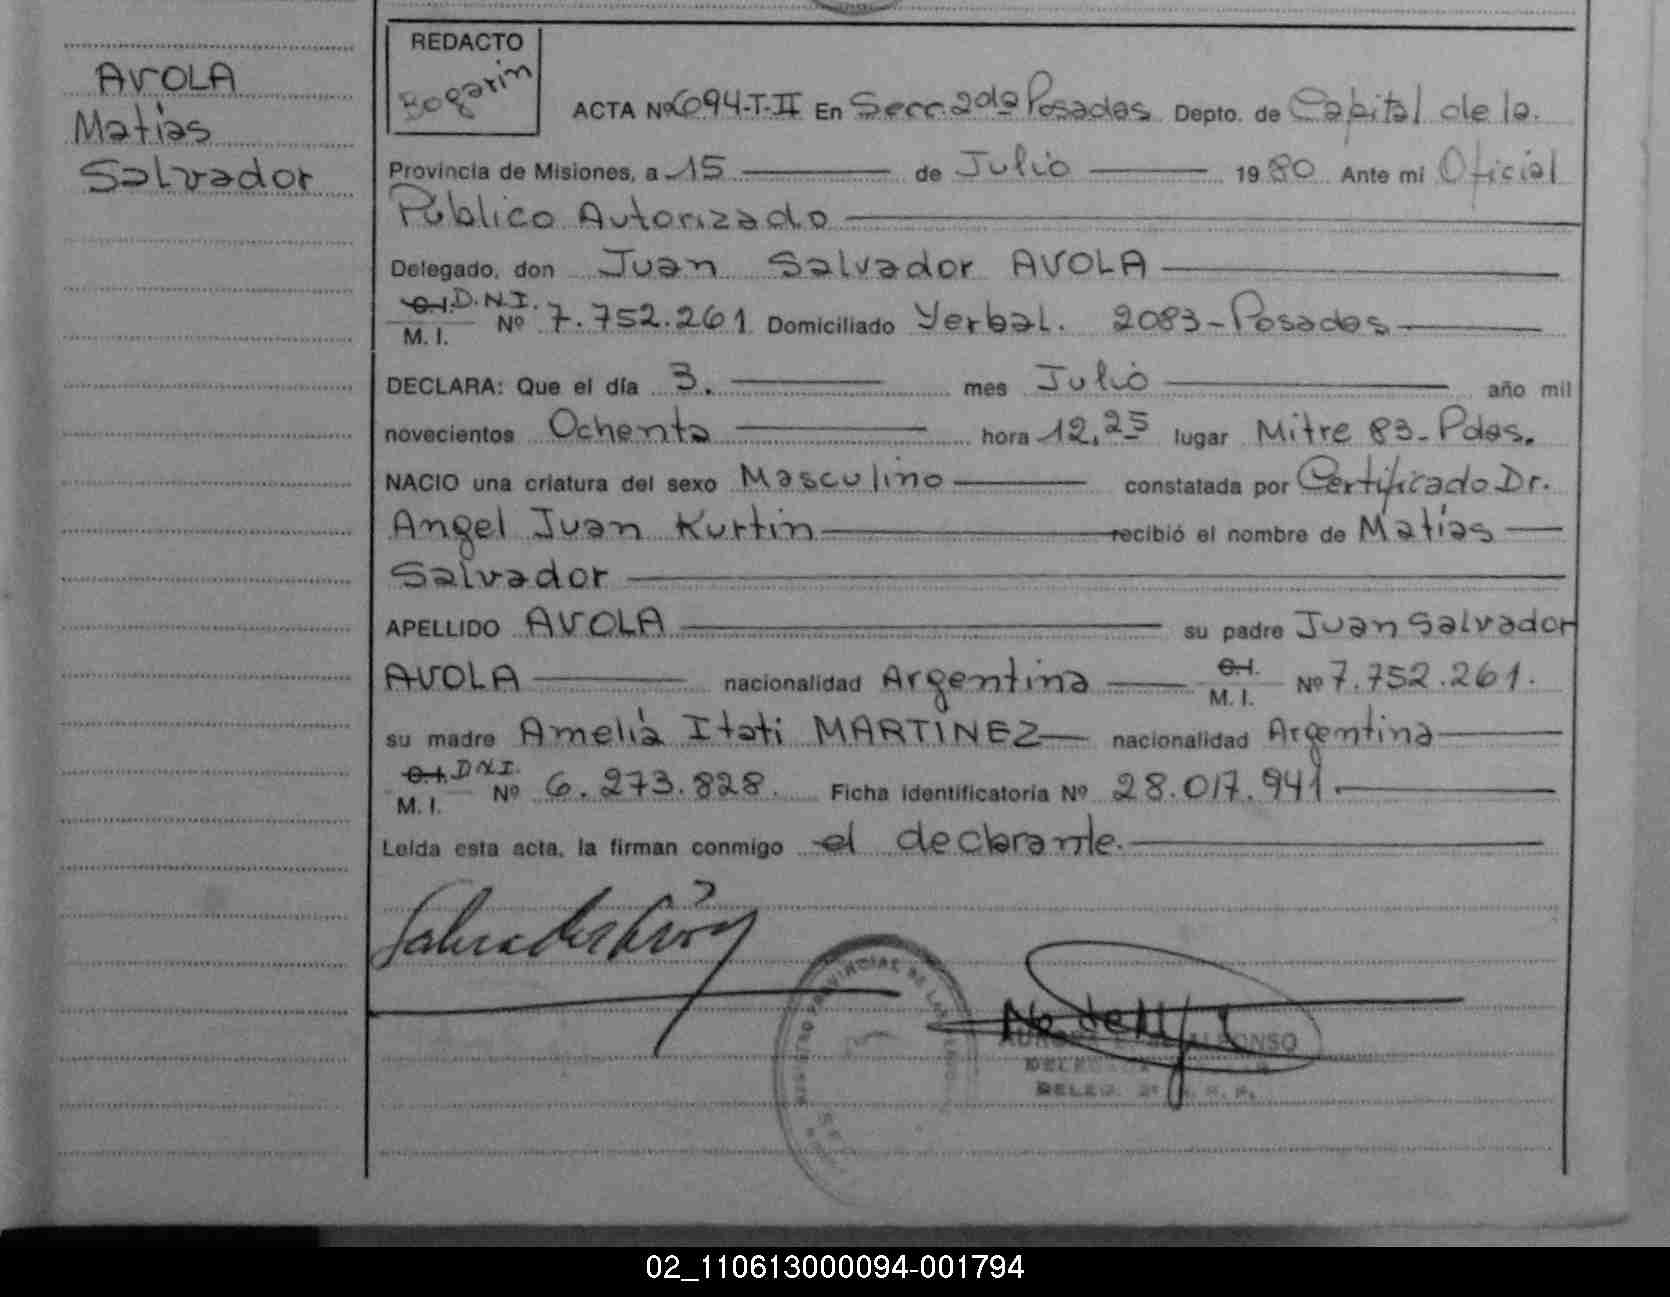 AVOLA
Matías
Salvador
REDACTO
Bogarin
ACTA Nº 6094-T-II En Secc. 2da Posadas Depto. de Capital de la
Provincia de Misiones, a 15 de Julio 1980 Ante mi Oficial
Público Autorizado
Delegado, don Juan Salvador AVOLA
C.I. D.N.I.
M. I. Nº 7.752.261 Domiciliado Yerbal. 2083-Posadas
DECLARA: Que el día 3. mes Julio año mil
novecientos Ochenta hora 12,25 lugar Mitre 83-Pdas.
NACIO una criatura del sexo Masculino constatada por Certificado Dr.
Angel Juan Kurtin recibió el nombre de Matías
Salvador
APELLIDO AVOLA su padre Juan Salvador
AVOLA nacionalidad Argentina C.I. M. I. Nº 7.752.261.
su madre Amelia Itati MARTINEZ nacionalidad Argentina
C.I. D.N.I.
M. I. Nº 6.273.828. Ficha identificatoria Nº 28.017.941.
Leída esta acta, la firman conmigo el declarante.
REGISTRO PROVINCIAL DE LAS
ALFONSO
DELEG. 2ª
02_110613000094-001794